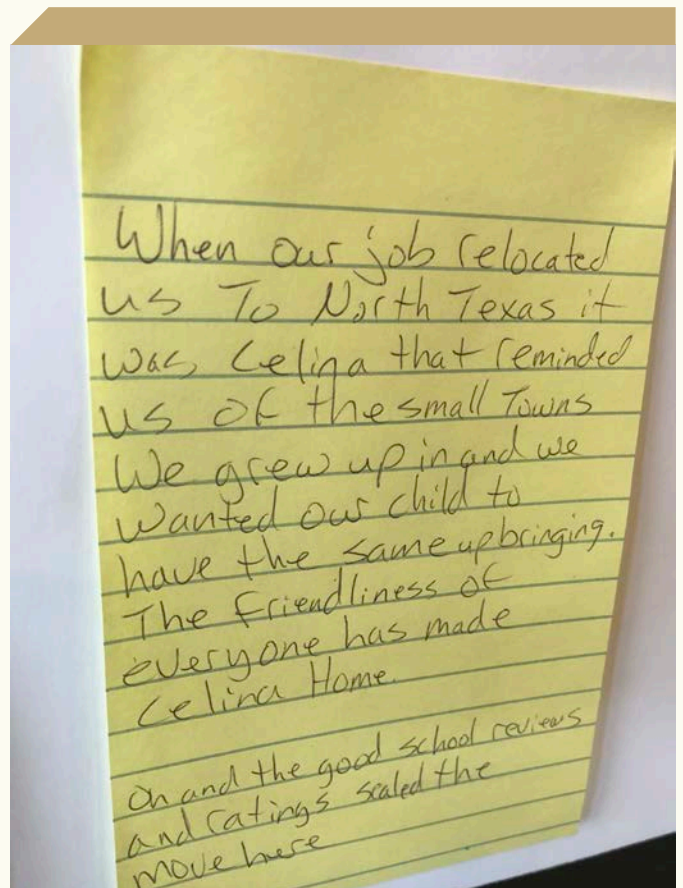 When our job relocated
us To North Texas it
was Celina that reminded
us of the small Towns
We grew up in and we
wanted our child to
have the same upbringing.
The friendliness of
everyone has made
Celina Home.
Oh and the good school reviews
and ratings sealed the
move here